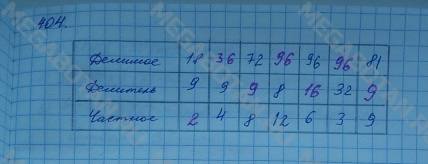 404.
Делимое 18 36 72 96 96 96 81
Делитель 9 9 9 8 16 32 9
Частное 2 4 8 12 6 3 9